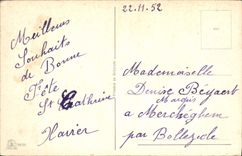 22.11.52
Meilleurs
Souhaits
de Bonne
Fête
St Cathrine
Xavier
Mademoiselle
Denise
à Merckeghem
par Bollezeele